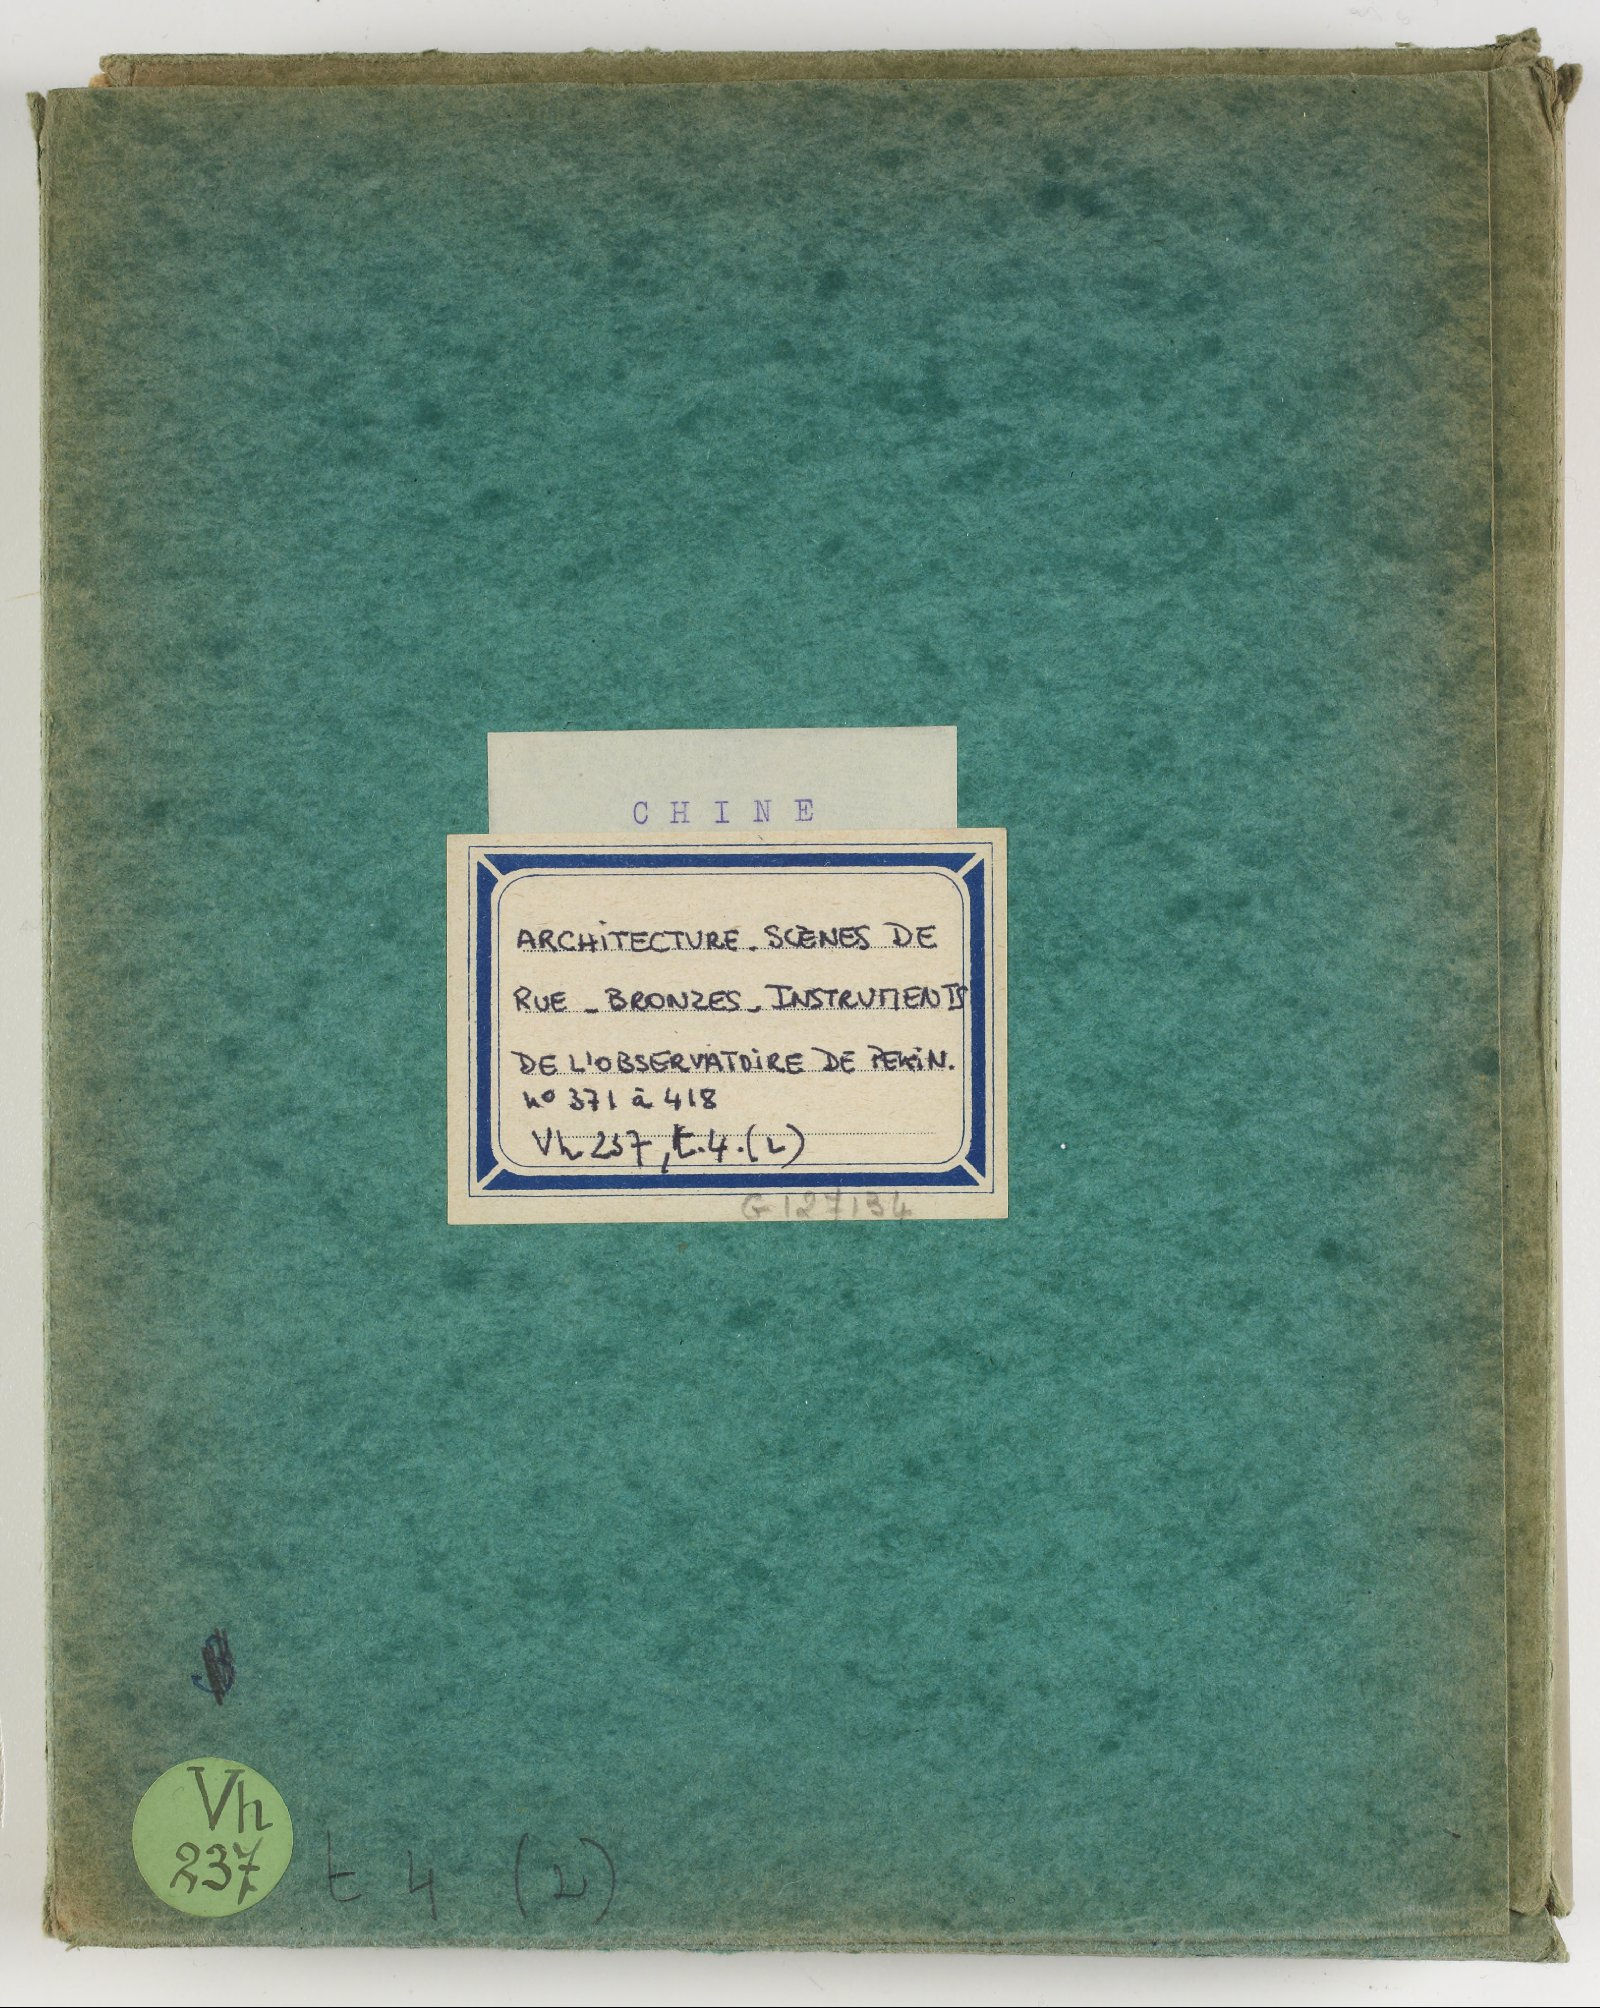 CHINE
ARCHITECTURE. SCÈNES DE
RUE - BRONZES - INSTRUMENTS
DE L'OBSERVATOIRE DE PEKIN.
no 371 à 418
Vh 237, t.4.(2)
G 127134
Vh
237
t 4 (2)